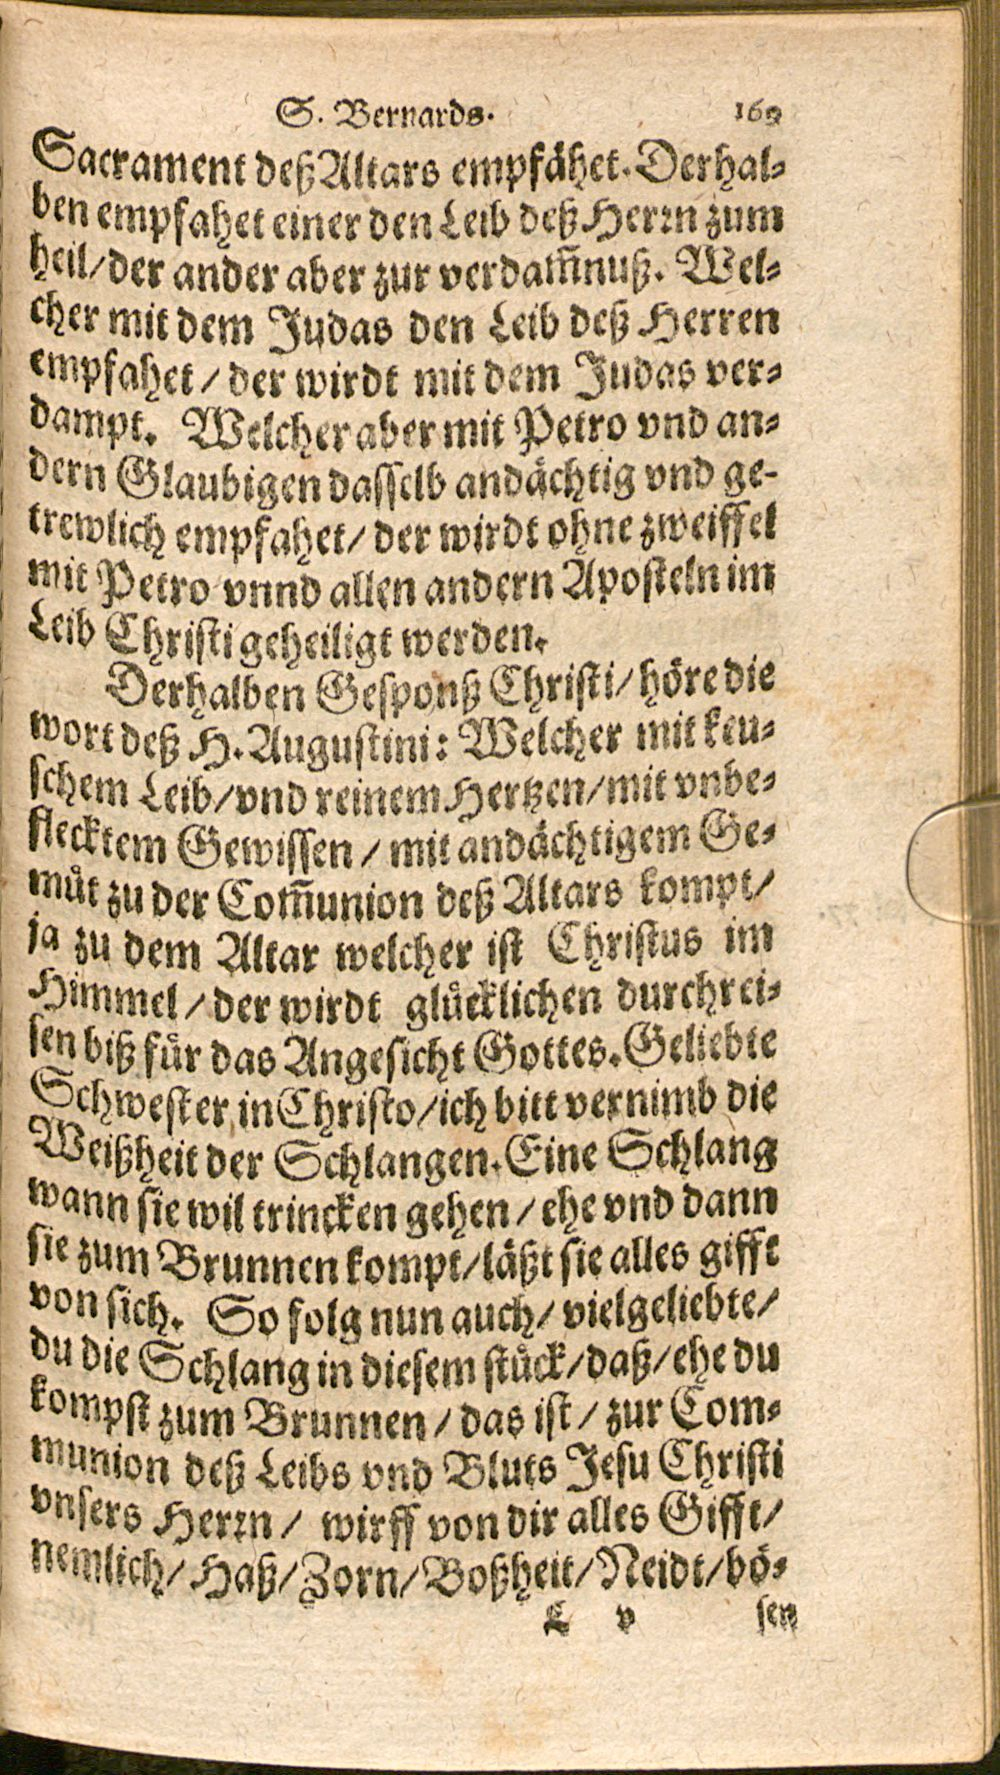 S. Bernards. 169
Sacrament deß Altars empfähet. Derhal-
ben empfahet einer den Leib deß Herrn zum
heil/ der ander aber zur verdam̃nuß. Wel-
cher mit dem Judas den Leib deß Herren
empfahet / der wirdt mit dem Judas ver-
dampt. Welcher aber mit Petro vnd an-
dern Glaubigen dasselb andächtig vnd ge-
trewlich empfahet/ der wirdt ohne zweiffel
mit Petro vnnd allen andern Aposteln im
Leib Christi geheiligt werden.
Derhalben Gesponß Christi/ höre die
wort deß H. Augustini: Welcher mit keu-
schem Leib/ vnd reinem Hertzen/ mit vnbe-
flecktem Gewissen / mit andächtigem Ge-
müt zu der Com̃union deß Altars kompt/
ja zu dem Altar welcher ist Christus im
Himmel / der wirdt glücklichen durchrei-
sen biß für das Angesicht Gottes. Geliebte
Schwester in Christo/ ich bitt vernimb die
Weißheit der Schlangen. Eine Schlang
wann sie wil trincken gehen / ehe vnd dann
sie zum Brunnen kompt/ läßt sie alles gifft
von sich. So folg nun auch/ vielgeliebte/
du die Schlang in diesem stück/ daß/ ehe du
kompst zum Brunnen / das ist / zur Com-
munion deß Leibs vnd Bluts Jesu Christi
vnsers Herrn / wirff von dir alles Gifft/
nemlich/ Haß/ Zorn/ Boßheit/ Neidt/ bö-
L v sen